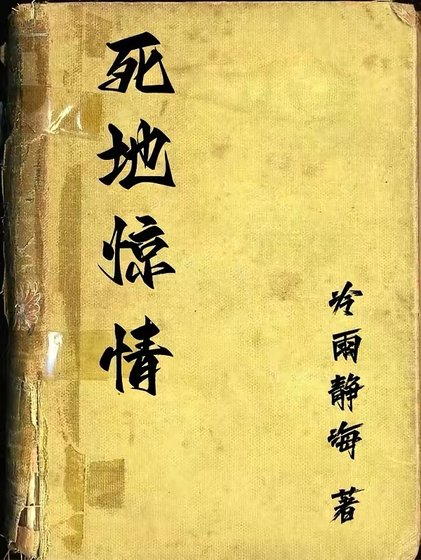 死地惊情
冷雨静海 著